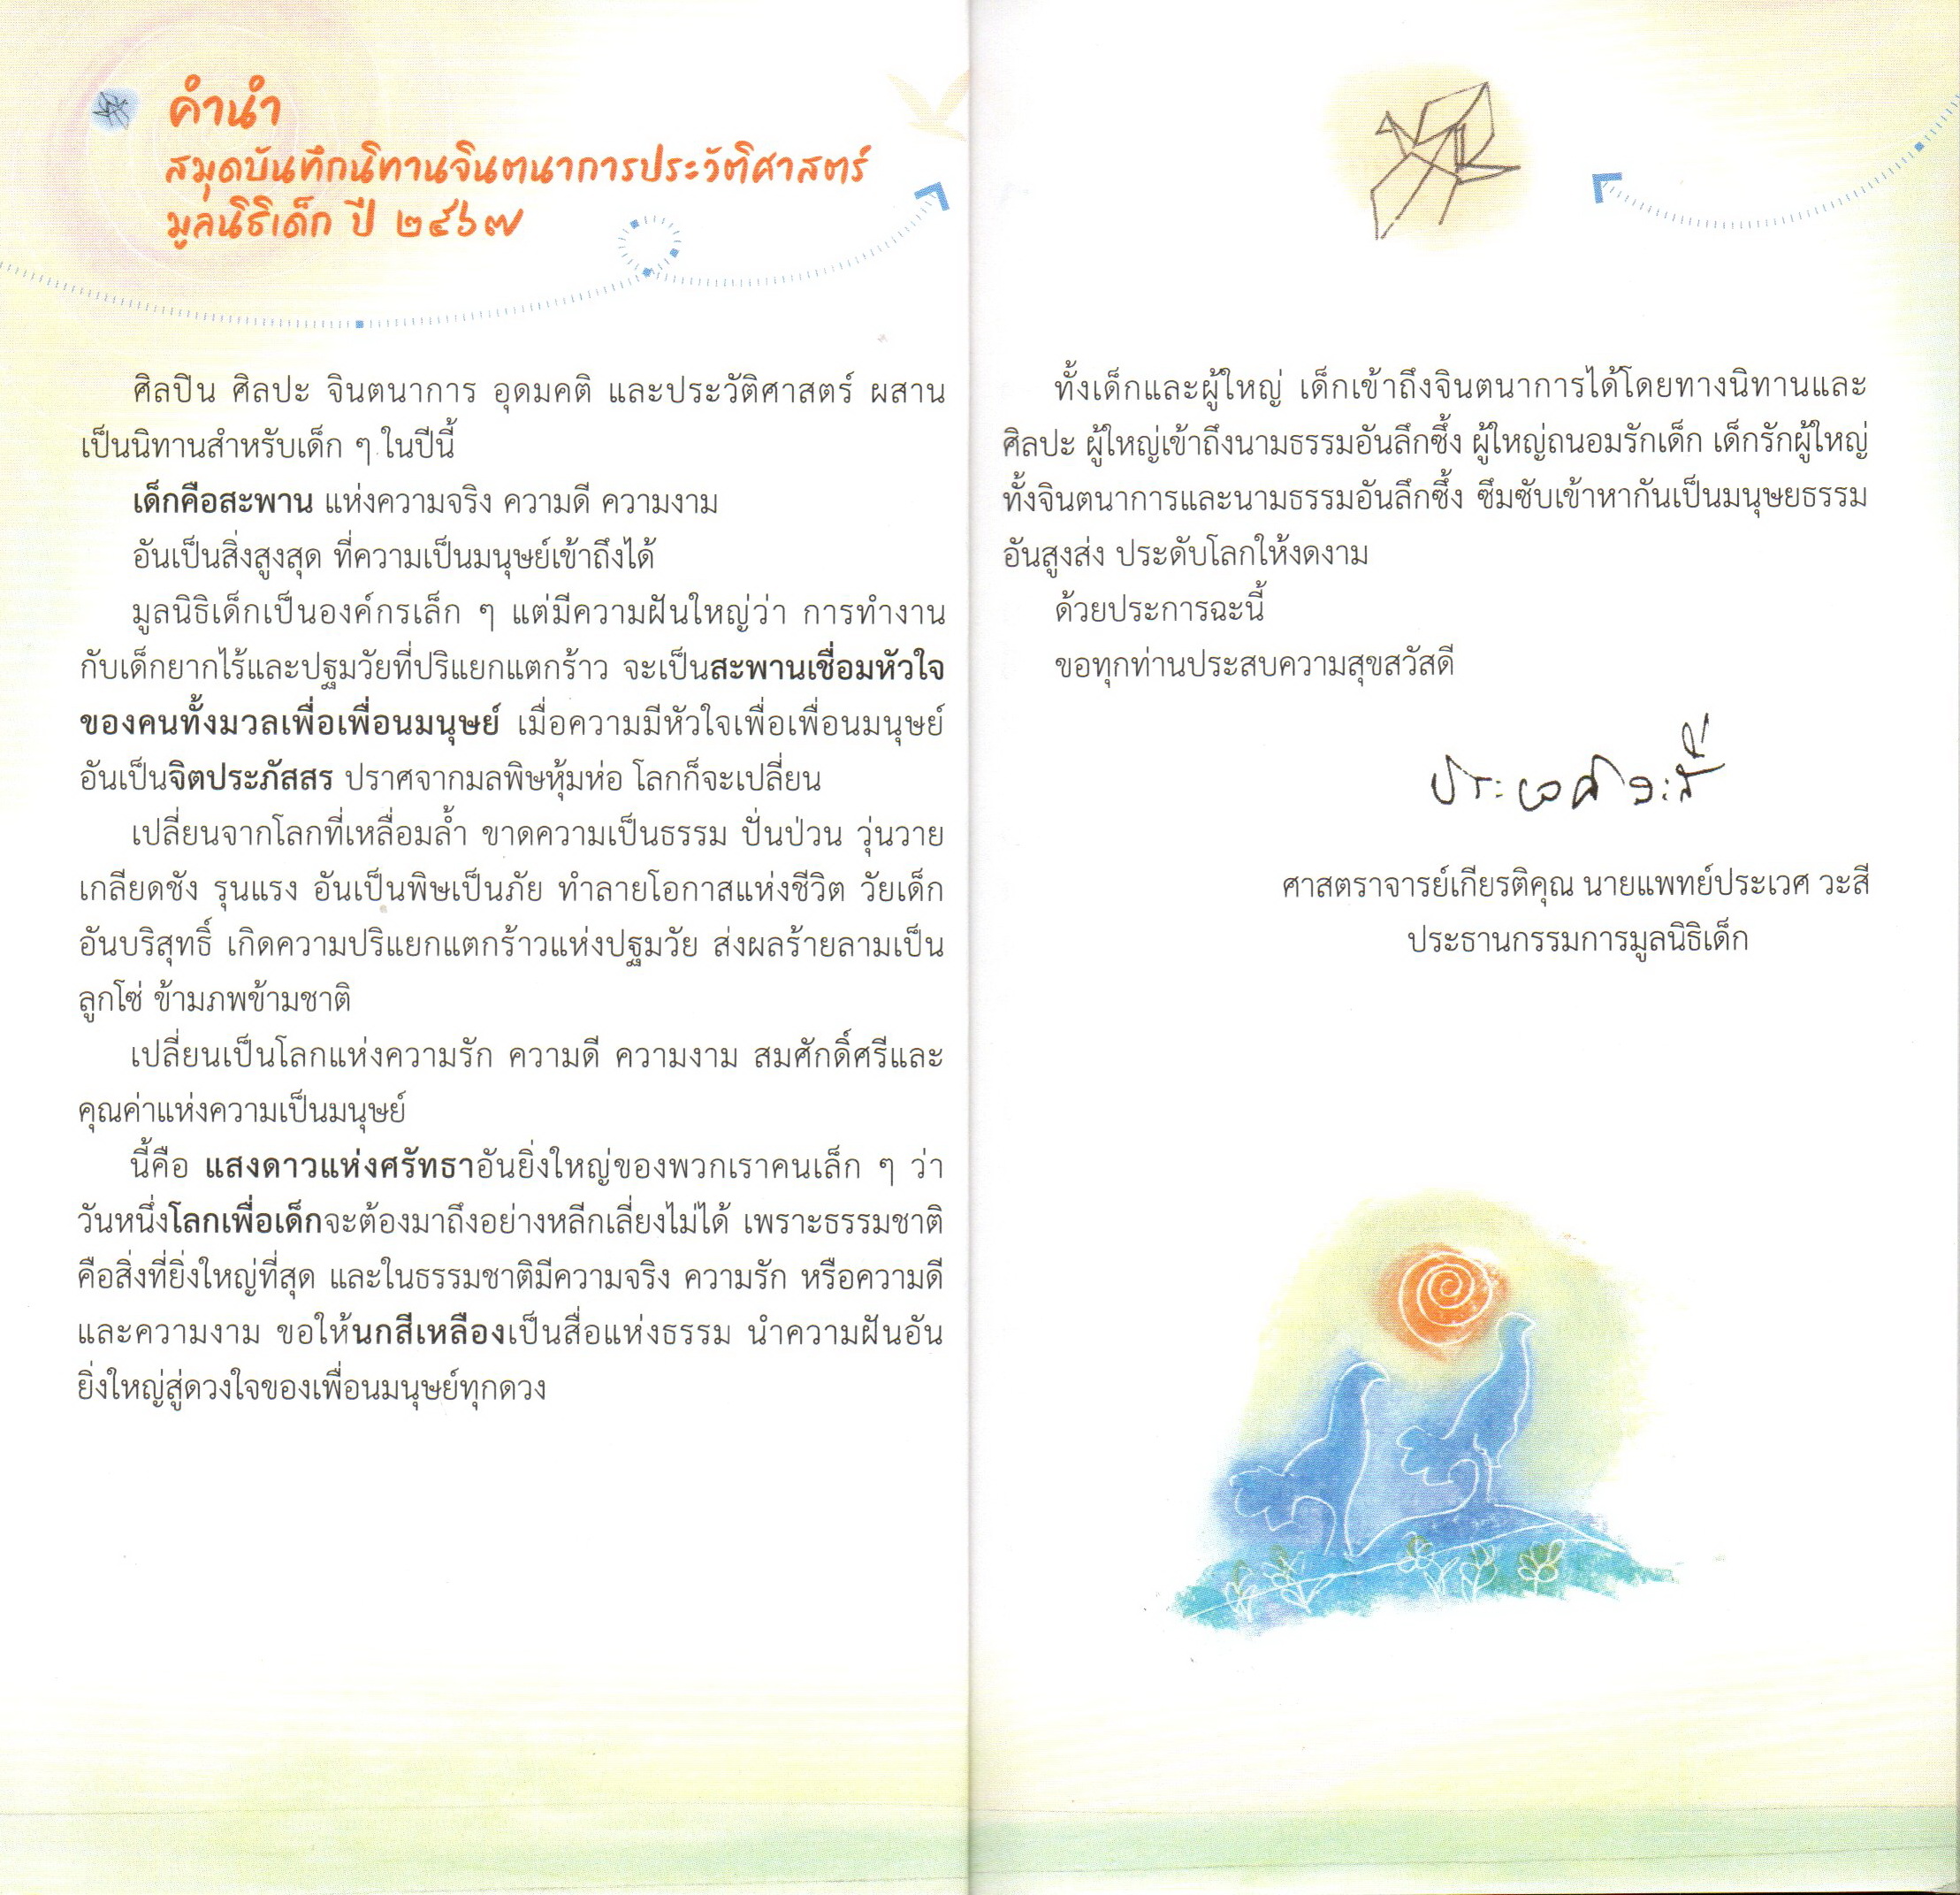 คำนำ
สมุดบันทึกนิทานจินตนาการประวัติศาสตร์
มูลนิธิเด็ก ปี ๒๕๖๗
ศิลปิน ศิลปะ จินตนาการ อุดมคติ และประวัติศาสตร์ ผสาน
เป็นนิทานสำหรับเด็ก ๆ ในปีนี้
เด็กคือสะพาน แห่งความจริง ความดี ความงาม
อันเป็นสิ่งสูงสุด ที่ความเป็นมนุษย์เข้าถึงได้
มูลนิธิเด็กเป็นองค์กรเล็ก ๆ แต่มีความฝันใหญ่ว่า การทำงาน
กับเด็กยากไร้และปฐมวัยที่ปริแยกแตกร้าว จะเป็นสะพานเชื่อมหัวใจ
ของคนทั้งมวลเพื่อเพื่อนมนุษย์ เมื่อความมีหัวใจเพื่อเพื่อนมนุษย์
อันเป็นจิตประภัสสร ปราศจากมลพิษหุ้มห่อ โลกก็จะเปลี่ยน
เปลี่ยนจากโลกที่เหลื่อมล้ำ ขาดความเป็นธรรม ปั่นป่วน วุ่นวาย
เกลียดชัง รุนแรง อันเป็นพิษเป็นภัย ทำลายโอกาสแห่งชีวิต วัยเด็ก
อันบริสุทธิ์ เกิดความปริแยกแตกร้าวแห่งปฐมวัย ส่งผลร้ายลามเป็น
ลูกโซ่ ข้ามภพข้ามชาติ
เปลี่ยนเป็นโลกแห่งความรัก ความดี ความงาม สมศักดิ์ศรีและ
คุณค่าแห่งความเป็นมนุษย์
นี้คือ แสงดาวแห่งศรัทธาอันยิ่งใหญ่ของพวกเราคนเล็ก ๆ ว่า
วันหนึ่งโลกเพื่อเด็กจะต้องมาถึงอย่างหลีกเลี่ยงไม่ได้ เพราะธรรมชาติ
คือสิ่งที่ยิ่งใหญ่ที่สุด และในธรรมชาติมีความจริง ความรัก หรือความดี
และความงาม ขอให้นกสีเหลืองเป็นสื่อแห่งธรรม นำความฝันอัน
ยิ่งใหญ่สู่ดวงใจของเพื่อนมนุษย์ทุกดวง
ทั้งเด็กและผู้ใหญ่ เด็กเข้าถึงจินตนาการได้โดยทางนิทานและ
ศิลปะ ผู้ใหญ่เข้าถึงนามธรรมอันลึกซึ้ง ผู้ใหญ่ถนอมรักเด็ก เด็กรักผู้ใหญ่
ทั้งจินตนาการและนามธรรมอันลึกซึ้ง ซึมซับเข้าหากันเป็นมนุษยธรรม
อันสูงส่ง ประดับโลกให้งดงาม
ด้วยประการฉะนี้
ขอทุกท่านประสบความสุขสวัสดี
ประเวศ วะสี
ศาสตราจารย์เกียรติคุณ นายแพทย์ประเวศ วะสี
ประธานกรรมการมูลนิธิเด็ก